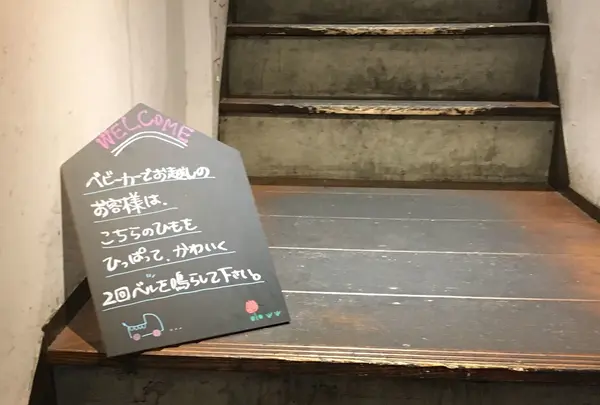 WELCOME
ベビーカーでお越しの
お客様は、
こちらのひもを
ひっぱって、かわいく
2回ベルを鳴らして下さい。